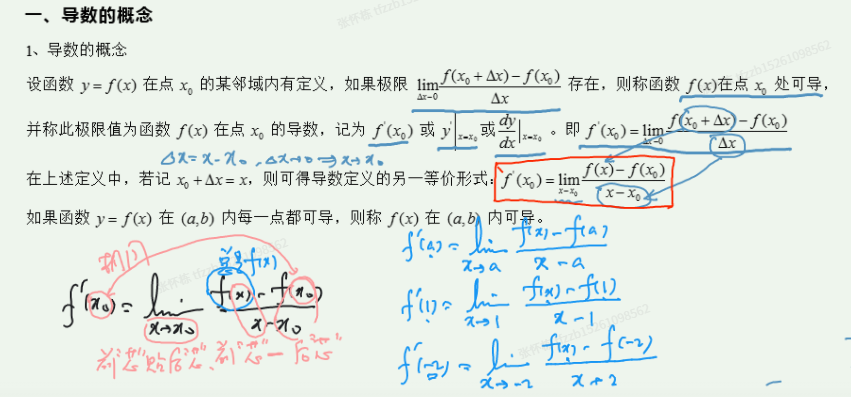 一、导数的概念
1、导数的概念
设函数 y = f(x) 在点 x₀ 的某邻域内有定义，如果极限 lim_{Δx→0} (f(x₀ + Δx) − f(x₀))/Δx 存在，则称函数 f(x)在点 x₀ 处可导，
并称此极限值为函数 f(x) 在点 x₀ 的导数，记为 f′(x₀) 或 y′|_{x=x₀} 或 dy/dx|_{x=x₀} 。即 f′(x₀) = lim_{Δx→0} (f(x₀ + Δx) − f(x₀))/Δx
Δx = x − x₀ , Δx→0 ⇒ x→x₀
在上述定义中，若记 x₀ + Δx = x，则可得导数定义的另一等价形式: f′(x₀) = lim_{x→x₀} (f(x) − f(x₀))/(x − x₀)
如果函数 y = f(x) 在 (a,b) 内每一点都可导，则称 f(x) 在 (a,b) 内可导。
f(x)
f′(x₀) = lim_{x→x₀} (f(x) − f(x₀))/(x − x₀)
f′(a) = lim_{x→a} (f(x) − f(a))/(x − a)
f′(1) = lim_{x→1} (f(x) − f(1))/(x − 1)
f′(−2) = lim_{x→−2} (f(x) − f(−2))/(x + 2)